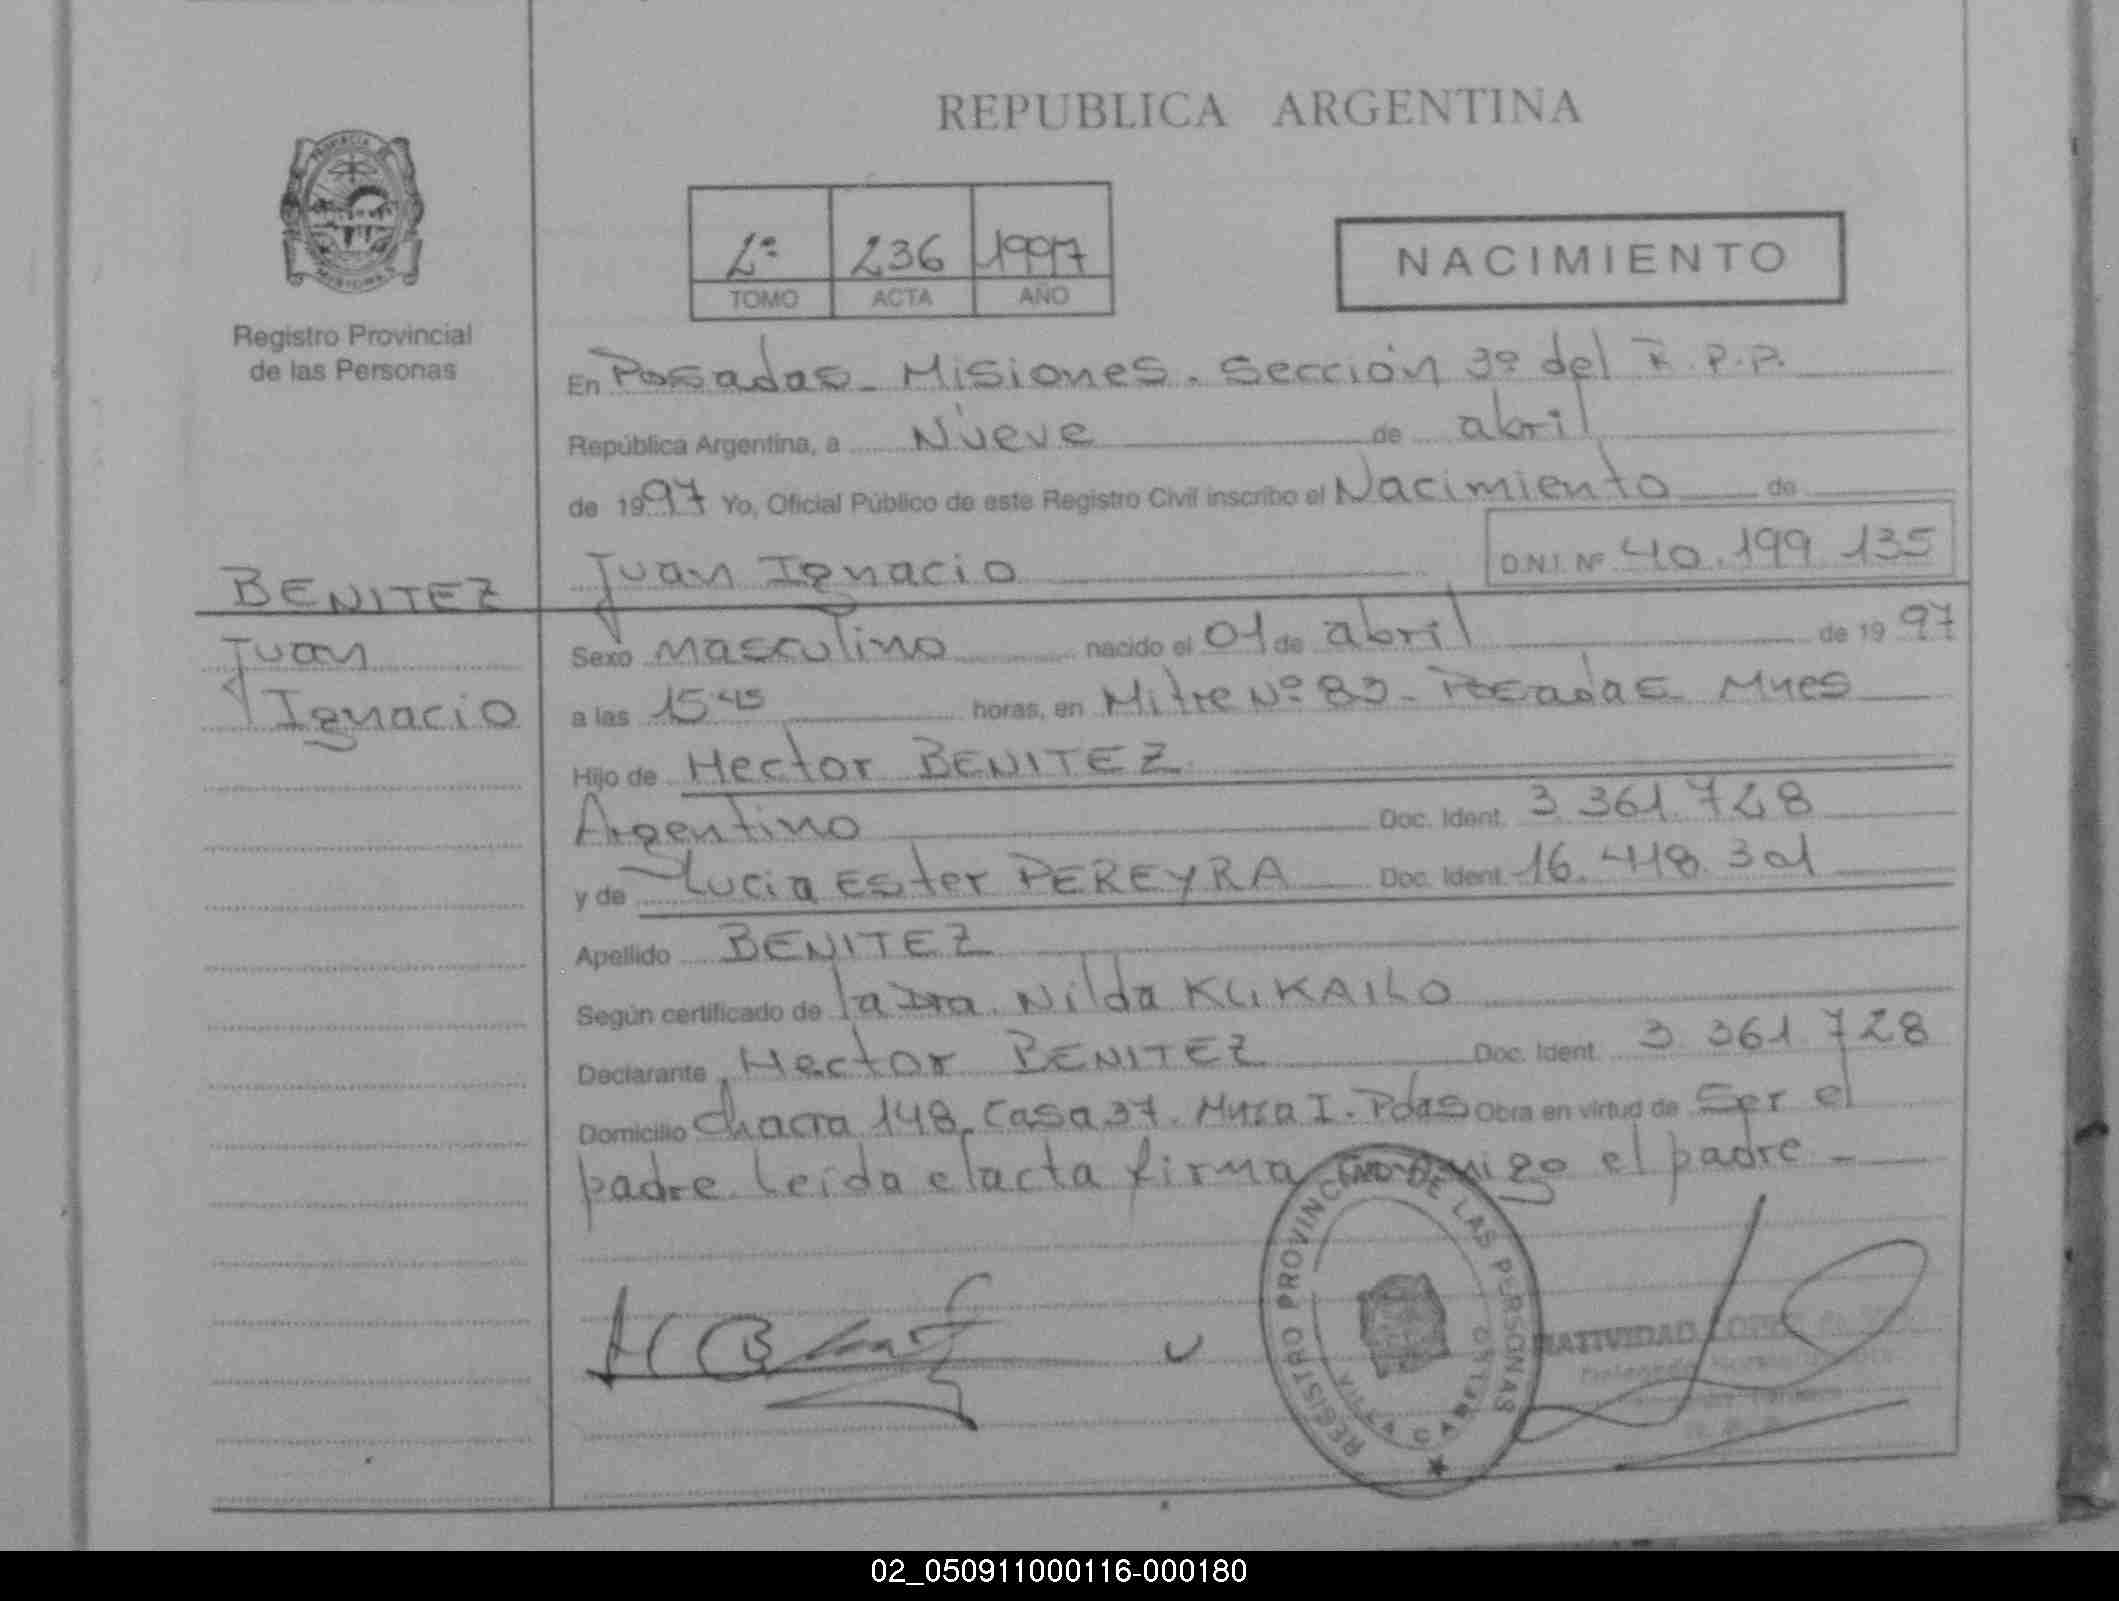 REPUBLICA ARGENTINA
2º 236 1997
TOMO ACTA AÑO
NACIMIENTO
Registro Provincial
de las Personas
En Posadas - Misiones. Sección 3º del R.P.P.
República Argentina, a Nueve de abril
de 1997 Yo, Oficial Público de este Registro Civil inscribo el Nacimiento de
Juan Ignacio D.N.I. Nº 40.199.135
BENITEZ
Juan
Ignacio
Sexo masculino nacido el 01 de abril de 1997
a las 15:45 horas, en Mitre Nº 89 - Posadas Mnes
Hijo de Hector BENITEZ
Argentino Doc. Ident. 3.361.728
y de Lucia Ester PEREYRA Doc. Ident. 16.418.301
Apellido BENITEZ
Según certificado de la Dra. Nilda KLIKAILO
Declarante Hector BENITEZ Doc. Ident. 3.361.728
Domicilio Chacra 148, Casa 37. I. Pdas Obra en virtud de Ser el
padre. Leida el acta firma conmigo el padre -
REGISTRO PROVINCIAL DE LAS PERSONAS
NATIVIDAD LOPEZ
02_050911000116-000180